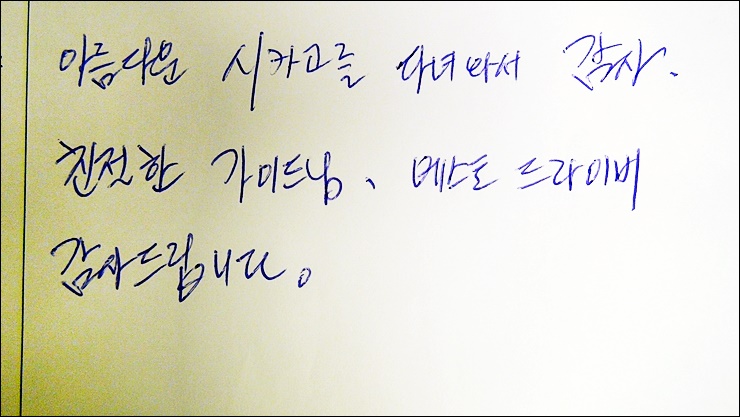 아름다운 시카고를 다녀와서 감사.
친절한 가이드님、 베스트 드라이버
감사드립니다。